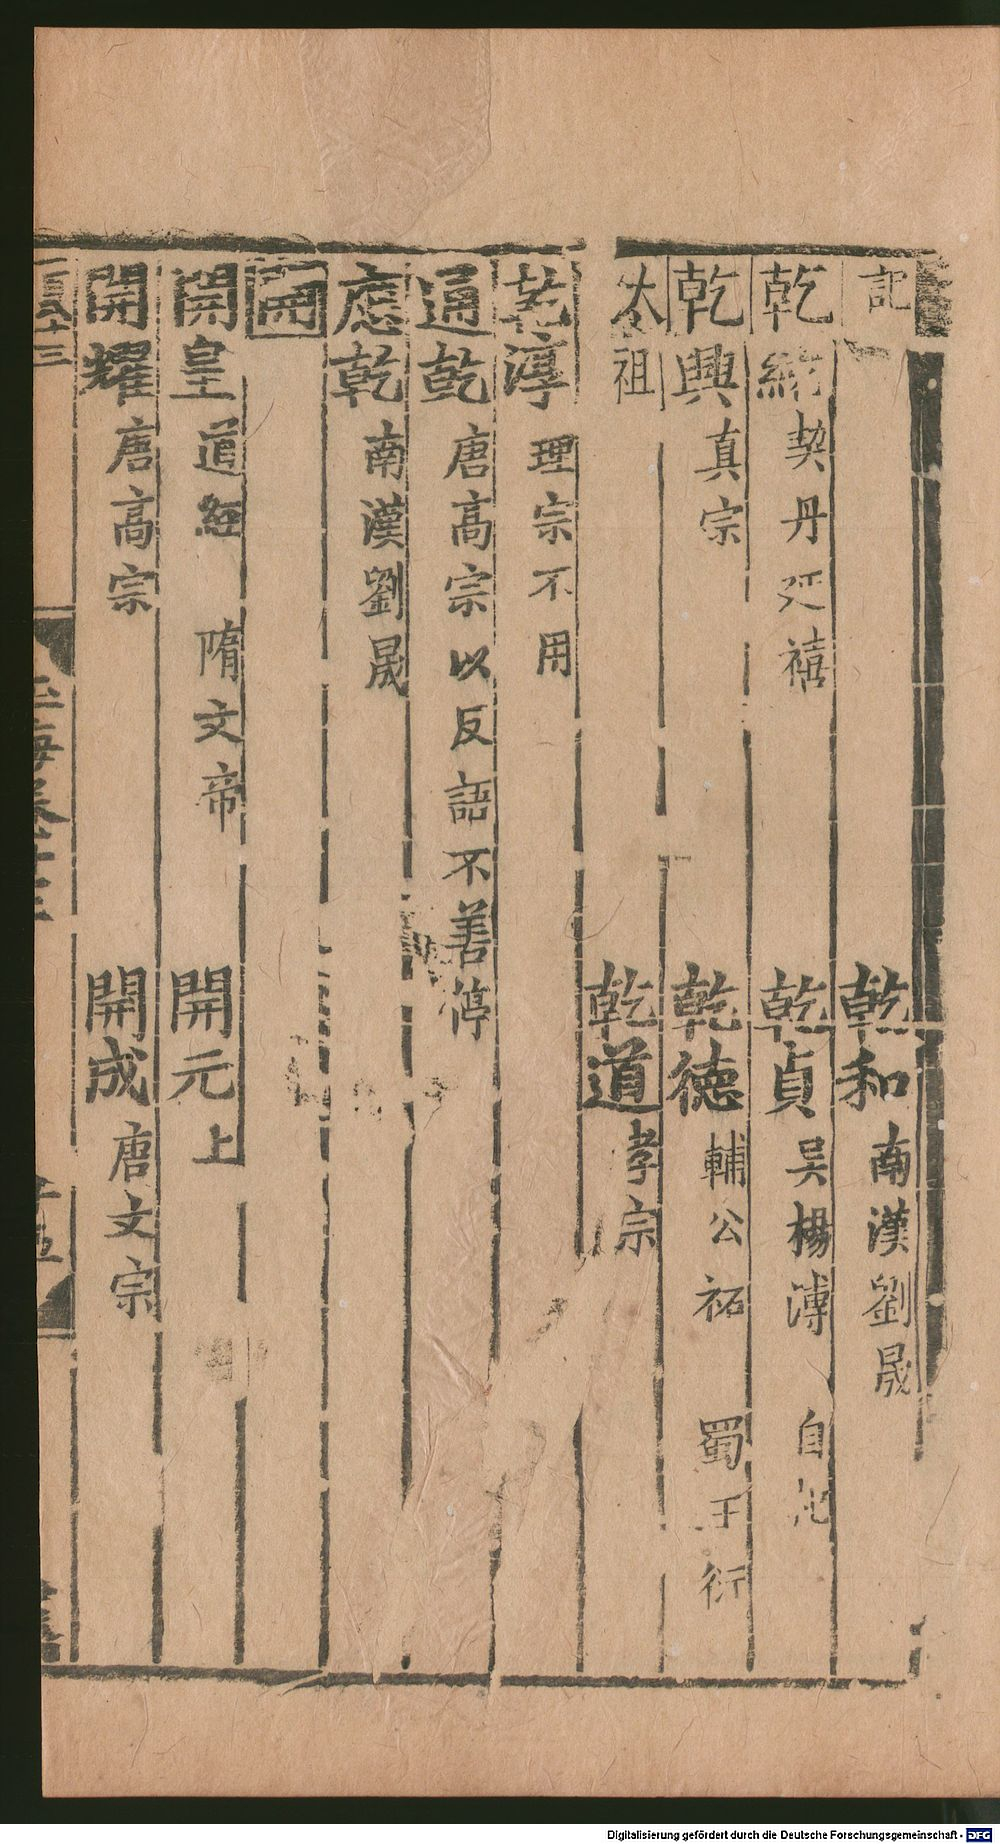 記 乾和 南漢劉晟
乾統 契丹延禧 乾貞 吳楊溥 自
乾興 真宗 乾德 輔公祏 蜀王衍
太祖 乾道 孝宗
乾淳 理宗不用
通乾 唐高宗以反語不善停
應乾 南漢劉晟
開
開皇 道經 隋文帝 開元 上
開耀 唐高宗 開成 唐文宗
玉海卷十三
Digitalisierung gefördert durch die Deutsche Forschungsgemeinschaft - DFG